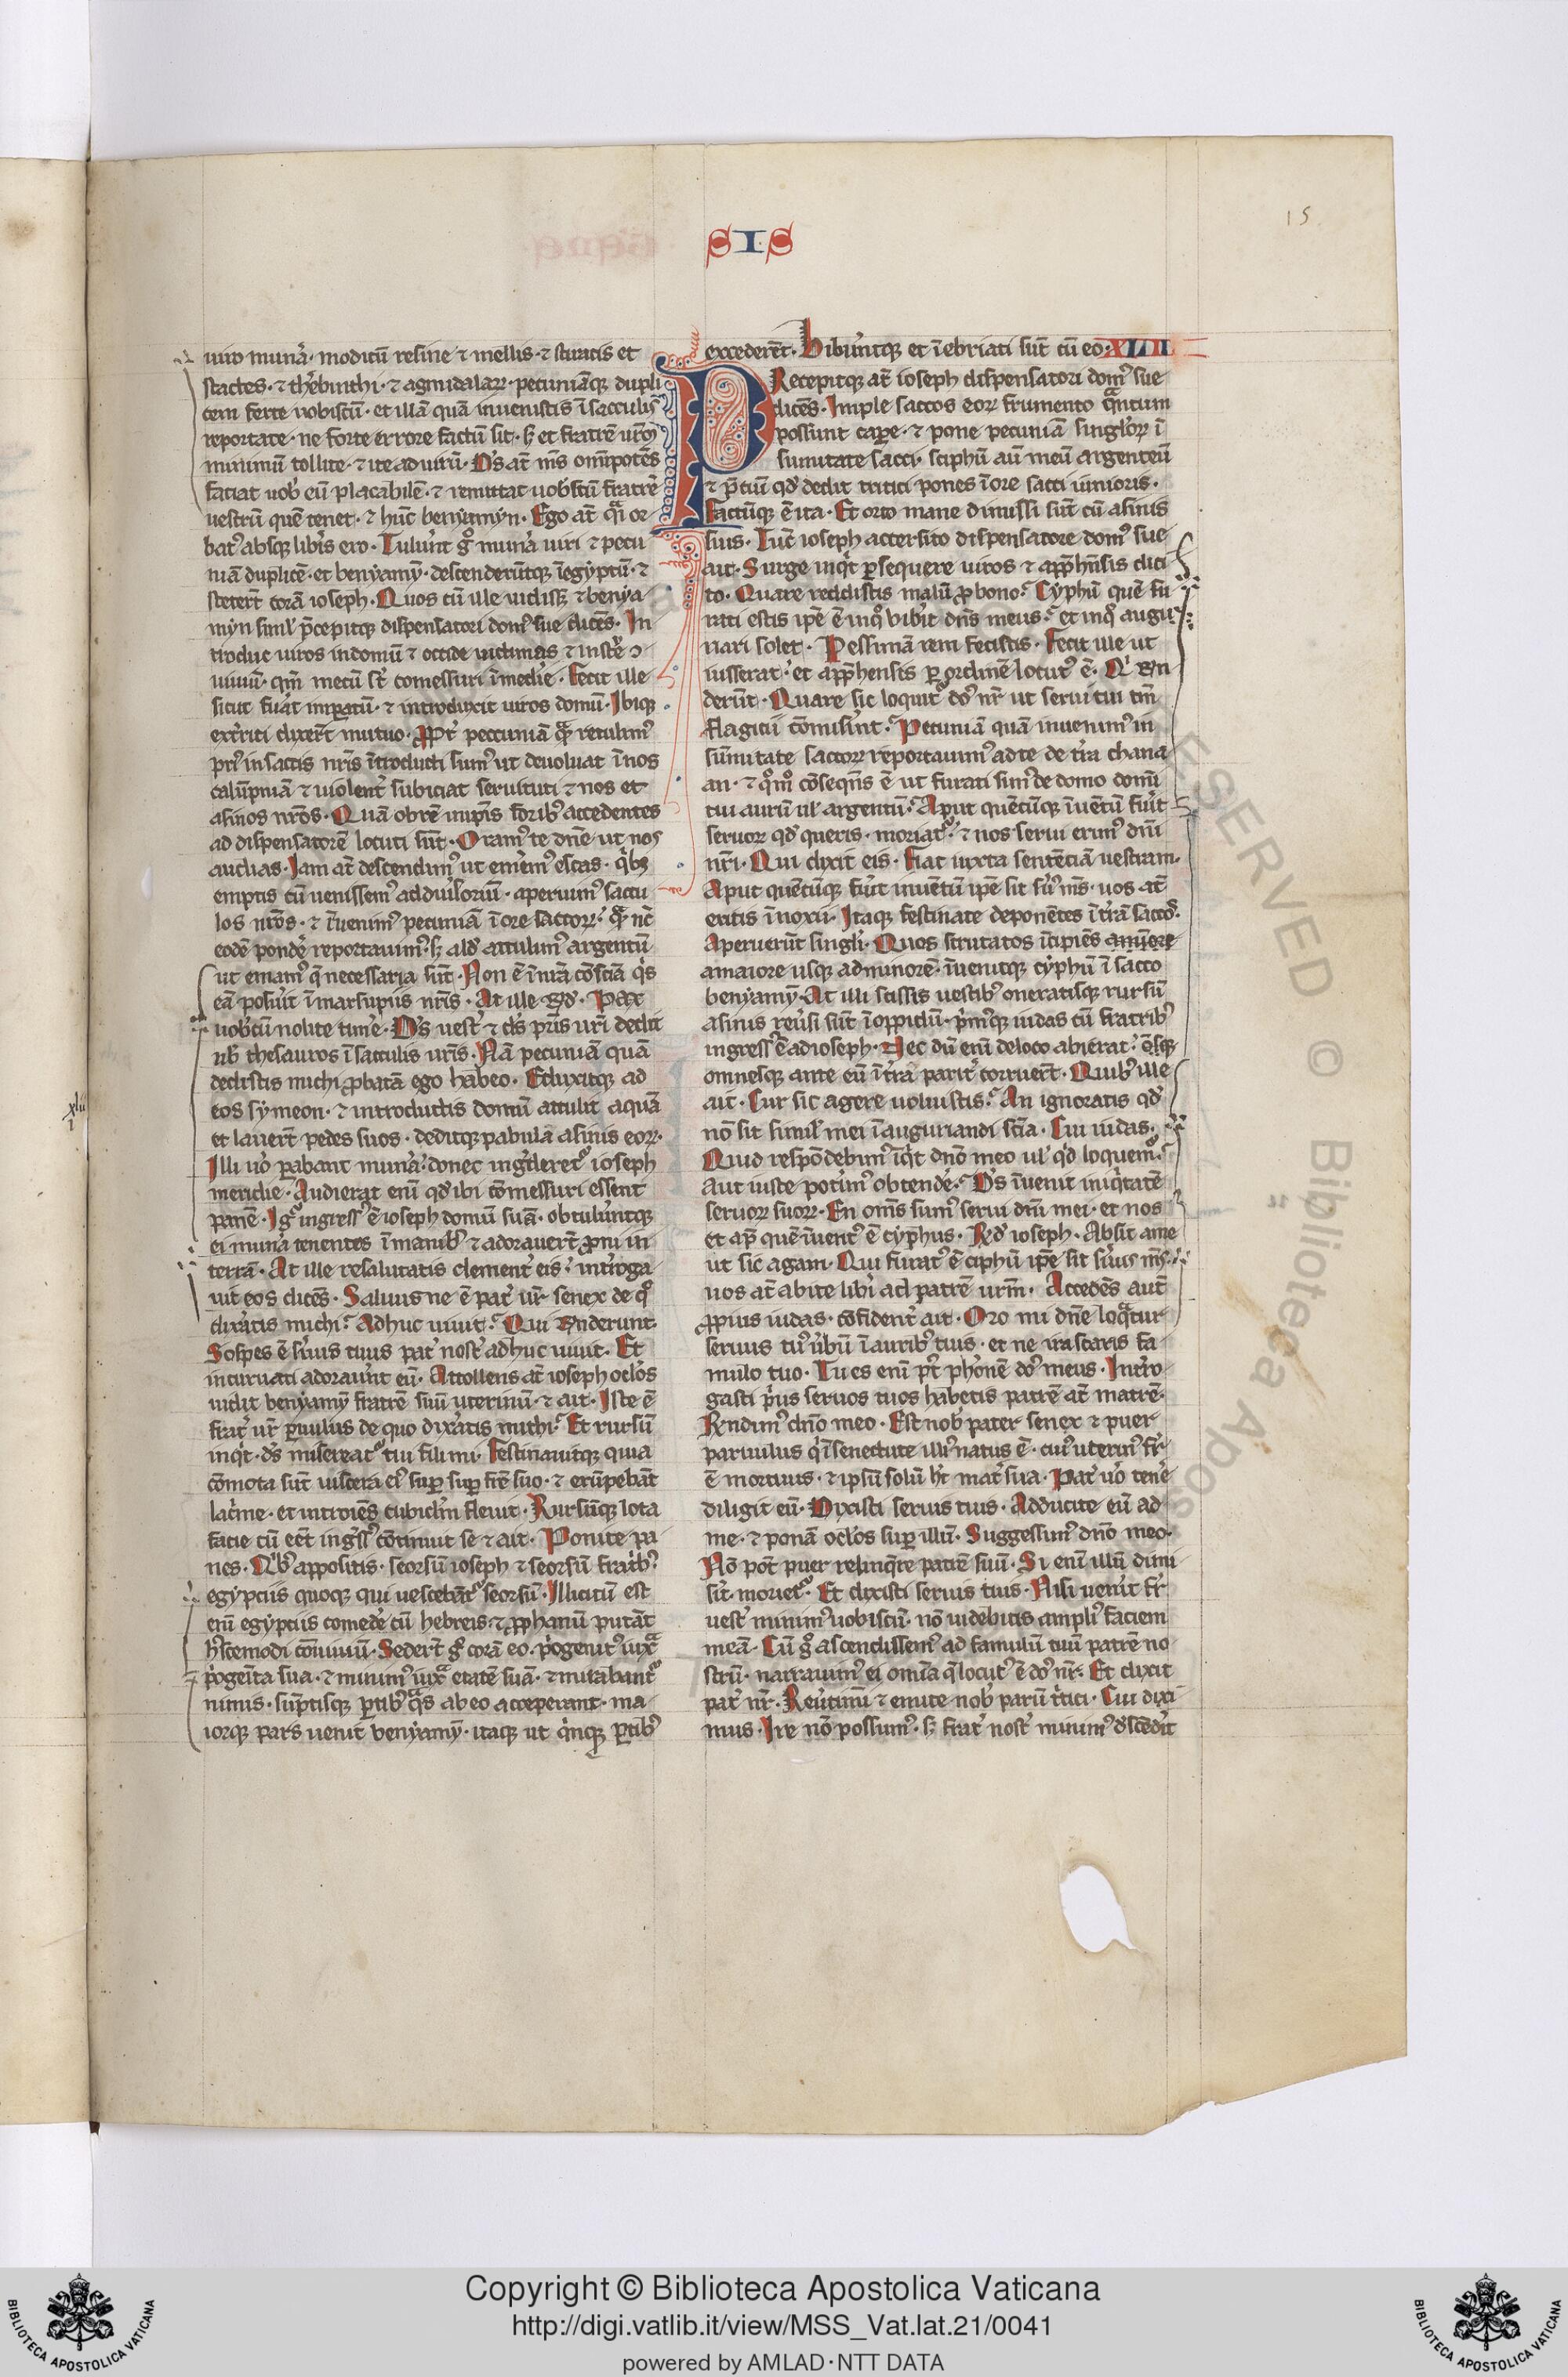 SIS
15
uiro muna᷑· modicū resine ⁊ mellis· ⁊ sturacis et
stactes· ⁊ thebinthi· ⁊ agmidalaꝝ· pecuniāq; dupli
cem ferte uobiscū· et illā quā inuenistis ī sacculis
reportate· ne forte errore factū sit· sꝫ et fratrē ur̄m
minimū tollite· ⁊ ite ad uirū· D's at̄ m̄s om̄ipotēs
faciat uob' eū placabilē· ⁊ remittat uobiscū fratrē
uestrū quē tenet· ⁊ hūc benyamyn· Ego at̄ qͣi or
bat᷒ absq; lib̄is ero· Tulūnt gͦ mun̄a uiri ⁊ pecu
niā duplicē· et benyamȳ· descenderūtq; ī egyptū· ⁊
stetert̄ corā ioseph· Quos cū ille uidissꝫ ⁊ benya
myn simł p̄cepitq; dispensatori dom᷒ sue dicēs· In
troduc uiros in domū ⁊ occide uictimas ⁊ inst̄e ↄ
uiuiū· qm̄ mecū st̄ comessuri ī medie· Fecit ille
sicut fuat impatū· ⁊ introduxit uiros domū· Ibiq;
ext̄riti dixert̄ mutuo· Ppt̄ peccuniā qͣꝫ retulim᷒
pri᷒ in saccis nr̄is ītroducti sum᷒ ut deuoluat ī nos
calūpniā ⁊ uiolent᷑ subiciat seruituti ⁊ nos et
asinos nr̄os· Quā obrē inip̄is forib᷒ accedentes
ad dispensatorē locuti sūt· Oram᷒ te dn̄e ut nos
audias· Iam at̄ descendim᷒ ut emem᷒ escas· qͥbꝫ
emptis cū uenissem᷒ ad diuisoriū· aperuim᷒ saccu
los nr̄os· ⁊ īuenim᷒ pecuniā ī ore saccoꝝ· qͣꝫ nc̄
eodē pondē reportauim᷒· sꝫ ald' attulim᷒ argentū
ut emam᷒ q̄ necessaria sūt· Non ē ī nr̄a cōsciā qͥs
eā posuit ī marsupiis nr̄is· At ille Rd'· Pax
uobcū nolite tim̄e· D's uest᷑ ⁊ d's pr̄is ur̄i dedit
ub' thesauros ī sacculis ur̄is· Nā pecuniā quā
dedistis michi ꝓbatā ego habeo· Eduxitq; ad
eos symeon· ⁊ introductis domū attulit aquā
et lauert̄ pedes suos· deditq; pabula asinis eoꝝ·
Illi uo᷑ pabant muna᷑· donec ingrederet᷑ ioseph
meridie· Audierat enī qd' ibi cōmessuri essent
panē· Igͥ ingress᷒ ē ioseph domū suā· obtulūntq;
ei muna᷑ tenentes ī manib᷒ ⁊ adorauert̄ ꝓni in
terrā· At ille resalutatis clement᷑ eis· int̄roga
uit eos dicēs· Saluus ne ē pat᷑ ur̄ senex de qͦ
dixatis michi· Adhuc uiuit· Qui Rnderunt·
Sospes ē s᷑uus tuus pat᷑ nost᷑ adhuc uiuit· Et
incuruati adorauūt eū· Attollens at̄ ioseph oclos
uidit benyamȳ fratrē suū uterinū· ⁊ ait· Iste ē
frat᷑ ur̄ ꝑuulus de quo dixatis michi· Et rursū
inqͥt· ds̄ misereat᷑ tui fili mi· Festinauitq; quia
cōmota sūt uiscera ei᷒ suꝑ suꝑ fr̄e suo· ⁊ erūpebāt
lac᷑me· et introiēs cubiclm̄ fleuit· Rursūq; lota
facie cū eēt ingress᷒ cōtinuit se ⁊ ait· Ponite pa
nes· Qͥb᷒ appositis· seorsū ioseph ⁊ seorsū fratib᷒
egyptiis quoq; qui uescebāt᷑ seorsū· Illicitū est
enī egyptiis comede᷑ cū hebreis ⁊ ꝓphanū putāt
hͥcemodi cōuiuiū· Sedert̄ gͦ corā eo· pͥogenit᷒ iuxͣ
pͥogenīta sua· ⁊ minim᷒ iuxͣ etatē suā· ⁊ mirabant᷑
nimis· sūptisq; ꝑtib᷒ qͣs ab eo acceperant· ma
iorq; pars uenit benyamȳ· itaq; ut qͥnq; ꝑtib᷒
excederēt· Bibūntq; et īebriati sūt cū eo· XLIIII
PRecepitq; at̄ ioseph dispensatori dom᷒ sue
dicēs· Imple saccos eoꝝ frumento qͣntum
possunt caꝑe· ⁊ pone pecuniā singloꝝ ī
sumitate sacci· sciphū aū meū argenteū
⁊ p̄ciū qd' dedit tritici pones ī ore sacci iunioris·
Factūq; ē ita· Et orto mane dimissi sūt cū asinis
suis· Tūc ioseph accersito dispensatore dom᷒ sue
ait· Surge inqͥt ꝑsequere uiros ⁊ app̄hēnsis dici
to· Quare reddistis malū ꝓ bono· Cyphū quē fu
rati estis ip̄e ē in qͦ bibit dn̄s meus· et in qͦ augu
riari solet· Pessimā rem fecistis· Fecit ille ut
iusserat· et app̄hensis ꝑ ordinē locut᷒ ē· Qͥ Rn
derūt· Quare sic loquit᷑ do᷒ nr̄ ut serui tui tm̄
flagicii cōmisint· Pecuniā quā inuenim᷒ in
sūmitate saccoꝝ reportauim᷒ ad te de tr̄a chana
an· ⁊ qͦmͦ cōseqn̄s ē ut furati sim᷒ de domo domī
tui aurū ul' argentū· Aput quēcūq; īuētū fuit
seruoꝝ qd' queris· moriat᷑· ⁊ nos serui erim᷒ dn̄i
nr̄i· Qui dixit eis· Fiat iuxta sentēciā uestram·
Aput quēcūq; fuit inuētū ip̄e sit su᷒ m̄s· uos at̄
eritis ī noxii· Itaq; festinate deponētes ī tr̄ā sacco᷑·
Aperuerūt singłi· Quos scrutatos īcipiēs aminore
amaiore usq; ad minorē· īuenitq; cyphū ī sacco
benyamȳ· At illi scissis uestib᷒ oneratisq; rursū
asinis reuersi sūt ī oppidū· pͥmq; iudas cū fratrib᷒
ingress᷒ ē ad ioseph· Nec dū enī de loco abierat·
omnesq; ante eū ī tr̄ā parit᷑ corruert̄· Quib᷒ ille
ait· Cur sic agere uoluistis· An ignoratis qd'
nō sit simił mei ī auguriandi scīa· Cui iudas·
Quid respōdebim᷒ īqͥt dn̄o meo ul' qͥd loquem᷑
Aut iuste potim᷒ obtende᷑· D's īuenit iniqͥtatē
seruoꝝ suoꝝ· En om̄s sum᷒ serui dn̄i mei· et nos
et ap̄ quē īuent᷒ ē cyphus· Rd' ioseph· Absit ame
ut sic agam· Qui furat᷒ ē ciphū ip̄e sit s᷑uus m̄s·
uos at̄ abite libi ad patrē ur̄m· Accedēs aut̄
ꝓpius iudas· cōfident᷑ ait· Oro mi dn̄e loqͣtur
seruus tu᷒ ubū ī aurib᷒ tuis· et ne irascaris fa
mulo tuo· Tu es enī pt̄ phōnē do᷒ meus· Intro
gasti pͥus seruos tuos habetis patrē at̄ matrē·
Rndim᷒ dn̄o meo· Est nob' pater senex ⁊ puer
paruulus qͥ ī senectute illi᷒ natus ē· cui᷒ uterin᷒ fr̄
ē mortuus· ⁊ ipsū solū ht̄ mat᷑ sua· Pat᷑ uo᷑ tene᷑
diligit eū· Dixisti seruis tuis· Adducite eū ad
me· ⁊ ponā oclos suꝑ illū· Suggessim᷒ dn̄o meo·
Nō pot̄ puer relinqͥre patrē suū· Si enī illū dimi
sit· moriet᷑· Et dixisti seruis tuis· Nisi uenit fr̄
uest᷑ minim᷒ uobiscū· nō uidebitis ampli᷒ faciem
meā· Cū gͦ ascendissem᷒ ad famulū tuū patrē no
strū· narrauim᷒ ei omīa q̄ locut᷒ ē do᷒ nr̄· Et dixit
pat᷑ nr̄· Reutimī ⁊ emite nob' parū tͥtici· Cui dixi
mus· Ire nō possum᷒· sꝫ frat᷑ nost᷑ minim᷒ d'scēdit
xlii
Copyright © Biblioteca Apostolica Vaticana
http://digi.vatlib.it/view/MSS_Vat.lat.21/0041
powered by AMLAD·NTT DATA
BIBLIOTECA APOSTOLICA VATICANA
BIBLIOTECA APOSTOLICA VATICANA